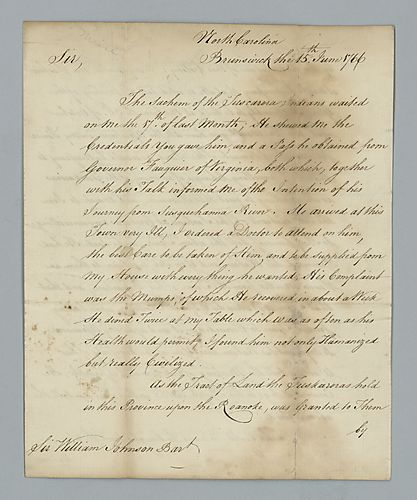 North Carolina
Brunswick the 15th June 1766
Sir,
The Sachem of the Tuscarora Indians waited
on me the 17th of last Month; He shewed me the
Credentials You gave him, and a Pass he obtained from
Governor Fauquier of Virginia, both which, together
with his Talk informed me of the Intention of his
Journey from Susquehanna River. He arrived at this
Town very Ill, I ordered a Doctor to attend on him,
the best Care to be taken of Him, and to be supplied from
My House with every thing he wanted. His Complaint
was the Mumps, of which He recovered in about a Week
He dined Twice at my Table which was as often as his
Health would permit. I found him not only Humanized
but really Civilized.
As the Tract of Land the Tuskaroras hold
in this Province upon the Roanoke, was granted to Them
by
Sir William Johnson Bart